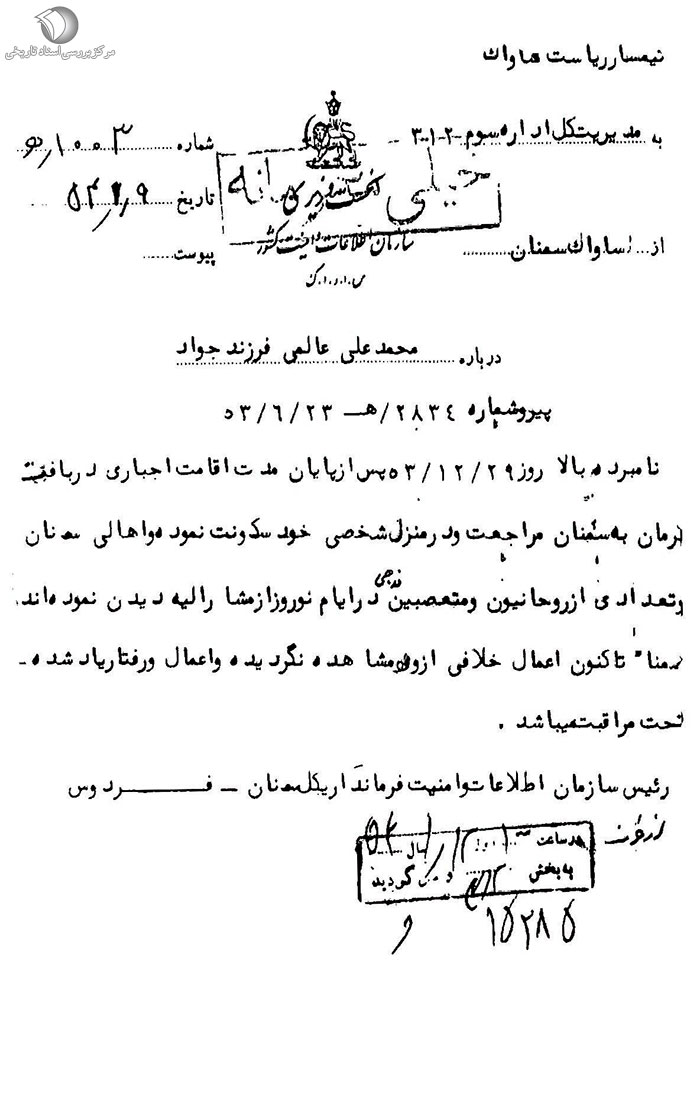 مرکز بررسی اسناد تاریخی
تیمسار ریاست ساواک
به مدیریت کل اداره سوم ۳۰۱۲
شماره ۱۰۰۳/ه
خیلی محرمانه
نخست وزیری
تاریخ ۵۴/۱/۹
از ساواک سمنان
سازمان اطلاعات و امنیت کشور
س.ا.و.ا.ک
پیوست
درباره محمد علی عالمی فرزند جواد
پیرو شماره ۲۸۳۴/هـ ۵۳/۶/۲۳
نامبرده بالا روز ۵۳/۱۲/۲۹ پس از پایان مدت اقامت اجباری در بافت
کرمان به سمنان مراجعت و در منزل شخصی خود سکونت نموده و اهالی سمنان
و تعدادی از روحانیون و متعصبین مذهبی در ایام نوروز از مشارالیه دیدن نموده اند.
ضمناً تاکنون اعمال خلافی از وی مشاهده نگردیده و اعمال و رفتار یاد شده -
تحت مراقبت میباشد .
رئیس سازمان اطلاعات و امنیت فرمانداریکل سمنان - فـــردوس
از طرف
در ساعت روز سال ۵۴
به بخش ۳۱۲ گردید
۱۵۲۸۵